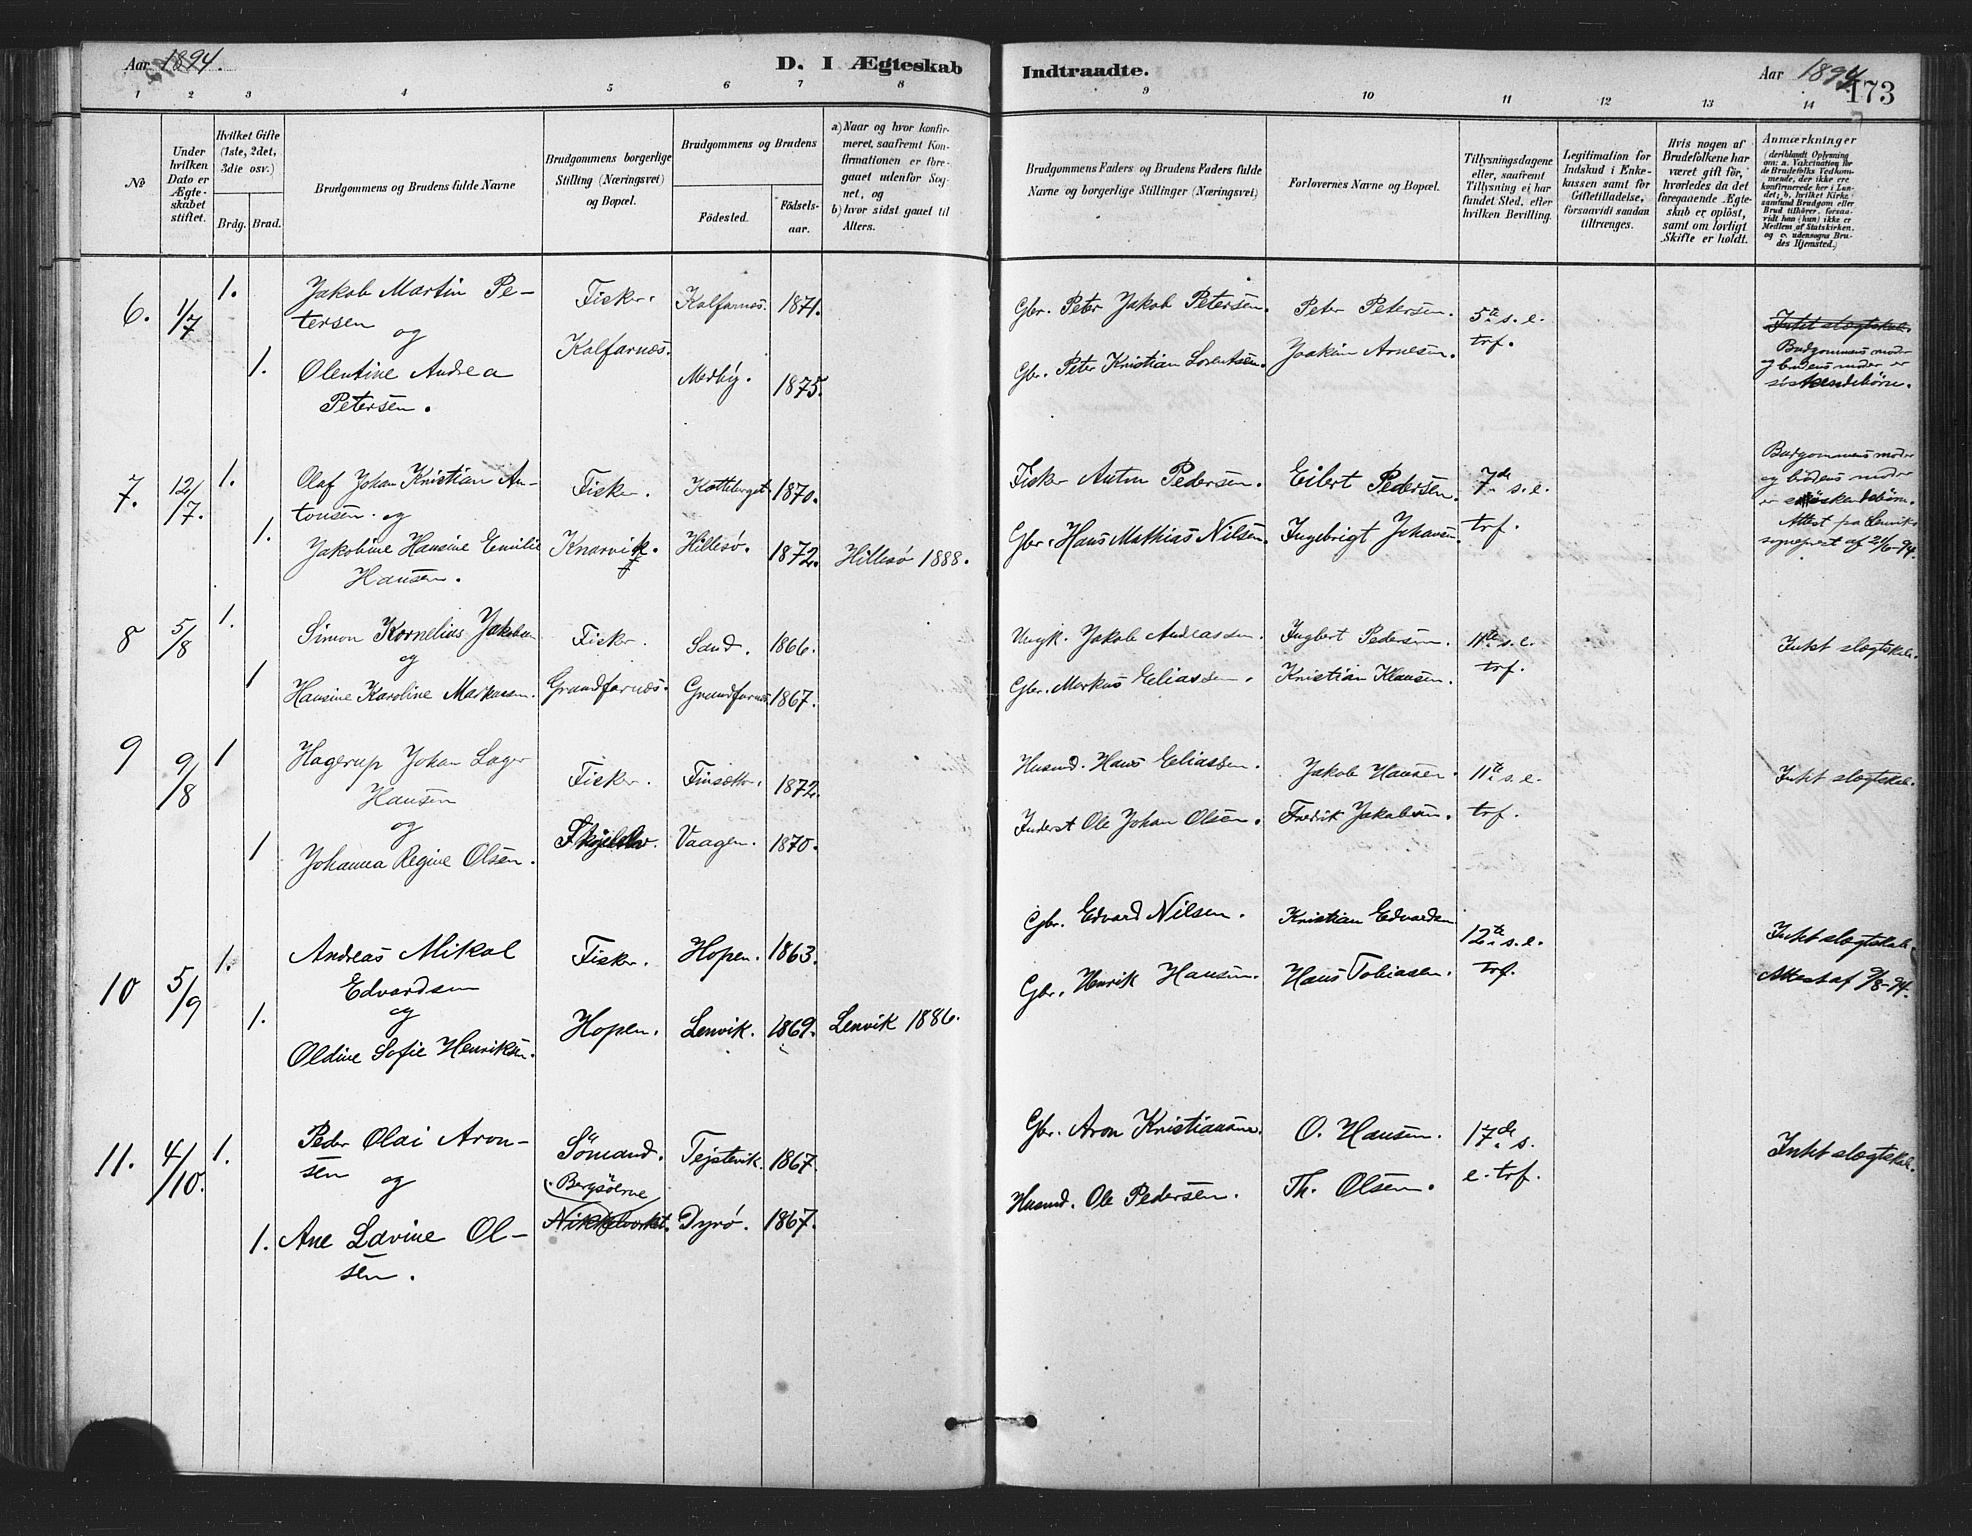 Aar 1894.
D. I Ægteskab Indtraadte.
Aar 1894
173
1 2 3 4 5 6 7 8 9 10 11 12 13 14
No
Under hvilken Dato er Ægteskabet stiftet.
Hvilket Gifte (1ste, 2det, 3die osv.)
Brdg. Brud.
Brudgommens og Brudens fulde Navne
Brudgommens borgerlige Stilling (Næringsvei) og Bopæl.
Brudgommens og Brudens
Fødested.
Fødsels-aar.
a) Naar og hvor konfirmeret, saafremt Konfirmationen er foregaaet udenfor Sognet, og
b) hvor sidst gaaet til Alters.
Brudgommens Faders og Brudens Faders fulde Navne og borgerlige Stillinger (Næringsvei)
Forlovernes Navne og Bopæl.
Tillysningsdagene eller, saafremt Tillysning ei har fundet Sted, efter hvilken Bevilling.
Legitimation for Indskud i Enkekassen samt for Giftetilladelse, forsaavidt saadan tiltrænges.
Hvis nogen af Brudefolkene har været gift før, hvorledes da det foregaaende Ægteskab er opløst, samt om lovligt Skifte er holdt.
Anmærkninger
(deriblandt Oplysning om: a. Vakcination for de Brudefolks Vedkommende, der ikke ere konfirmerede her i Landet; b. hvilket Kirkesamfund Brudgom eller Brud tilhører, forsaavidt han (hun) ikke er Medlem af Statskirken, og c. udensogns Brudes Hjemsted.)
6. 1/7 1. Jakob Martin Pe-
tersen
og
1. Olentine Andrea
Petersen.
Fisker.
Kalfarnes.
Kalfarnes. 1871.
Medby. 1875.
Gbr. Peter Jakob Petersen.
Gbr. Peter Kristian Lorentsen.
Peter Petersen.
Joakim Arnesen.
5te s. e.
trf.
Intet slegtskab.
Brudgommens moder
og brudens moder er
søskendebørn.
7. 12/7. 1. Olaf Johan Kristian An-
tonsen. og
1. Jakobine Hansine Emilie
Hansen.
Fisker.
Knarvik.
1870.
Hillesø. 1872.
Hillesø 1888.
Fisker Anton Pedersen.
Gbr. Hans Mathias Nilsen.
Eilert Pedersen.
Ingebrigt Johansen.
7de s. e.
trf.
Brudgommens moder
og brudens moder
er søskendebørn.
Attest fra Lenviks
sogneprest af 21/6-94.
8 5/8 1. Simon Kornelius Jakobsen
og
1 Hansine Karoline Markussen.
Fisker.
Grundfarnes.
Sand. 1866.
Grundfarnes. 1867.
Jakob Andreassen.
Gbr. Markus Eliassen.
Ingbert Pedersen.
Kristian Klausen.
11te s. e.
trf.
Intet slegtskab.
9 9/8 1 Hagerup Johan Lager
Hansen
og
1 Johanna Regine Olsen.
Fisker.
Finsæter. 1872.
Vaagen. 1870.
Husmd. Hans Eliassen.
Inderst Ole Johan Olsen.
Jakob Hansen.
Fredrik Jakobsen.
11te s. e.
trf.
Intet slegtskab.
10 5/9 1. Andreas Mikal
Edvardsen
og
1. Oldine Sofie Henriksen.
Fisker.
Hopen.
Hopen. 1863.
Lenvik. 1869.
Lenvik 1886.
Gbr. Edvard Nilsen.
Gbr. Henrik Hansen.
Kristian Edvardsen
Hans Tobiasen.
12te s. e.
trf.
Intet slegtskab.
Attest af 9/8-94.
11. 4/10. 1. Peder Olai Aron-
sen
og
1. Ane Lovine Ol-
sen.
Sömand.
Bergsöerne
Nikkelverket.
Tejstevik. 1867.
Dyrö. 1867.
Gbr. Aron Kristiansen.
Husmd. Ole Pedersen.
O. Hansen.
Th. Olsen.
17de s.
e. trf.
Intet slegtskab.